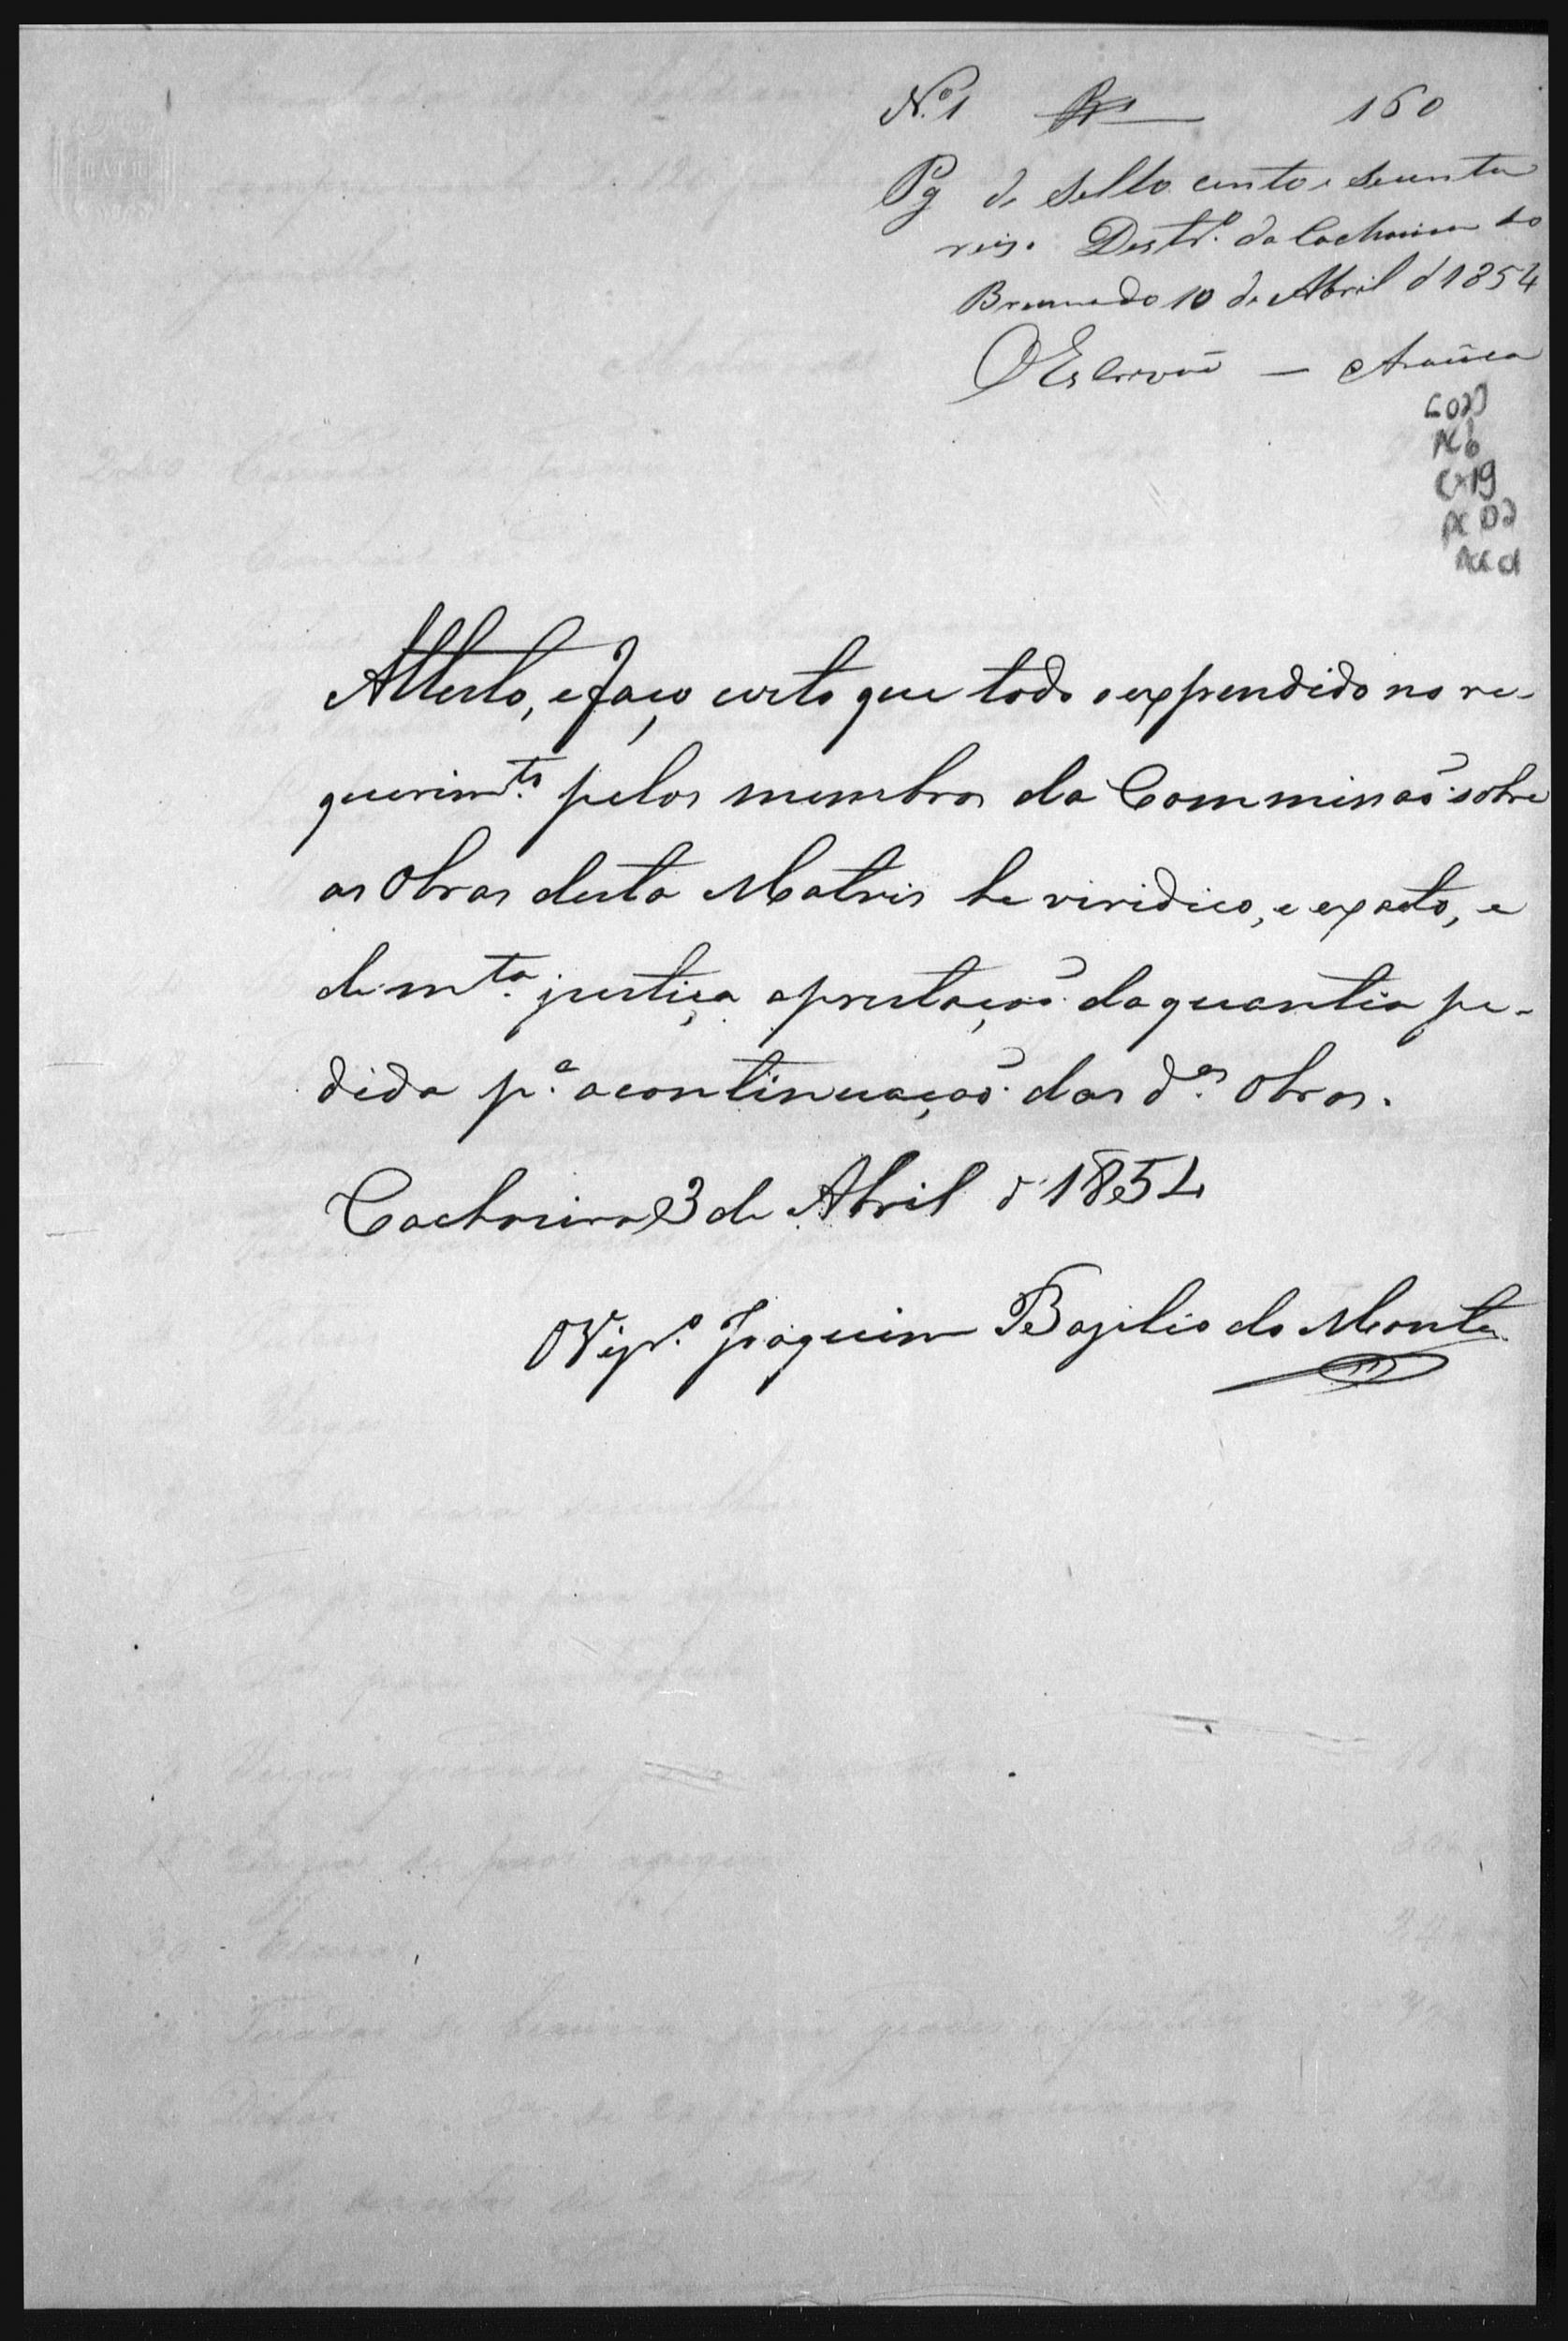 N.º 1 160
Pg de Sello cento e secenta
reis. Destr.º da Cachoeira do
Brumado 10 de Abril d 1854
O Escrivaõ —
C029
PC 6
Cx19
PC 02
Attesto, e faço certo que todo o expendido no re-
querim.to pelos membros da Commissaõ sobre
as Obras desta Matris he viridico, e exacto, e
de m.ta justiça aprestaçaõ da quantia pe-
dida p.ª acontinuaçaõ das d.as Obras.
Cachoeira 3 de Abril d 1854
O Vigr.º Joaquim Bazilio do Monte